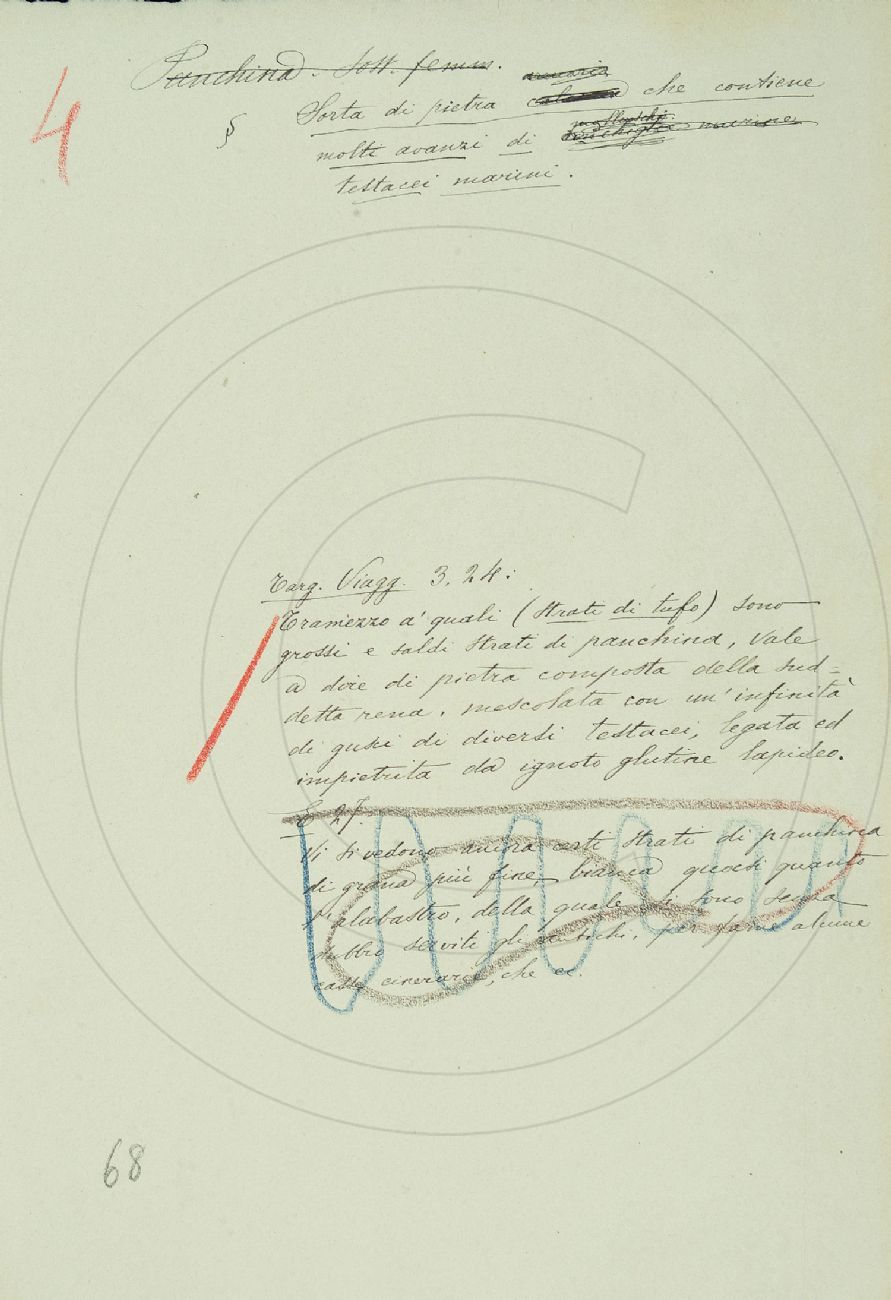 4
Panchina. Sost. femm.
arenaria
§ Sorta di pietra che contiene
molluschi
molti avanzi di conchiglie marine
testacei marini.
Targ. Viagg. 3, 24:
Tramezzo a' quali (strati di tufo) sono
grossi e saldi strati di panchina, vale
a dire di pietra composta della sud=
detta rena, mescolata con un'infinità
di gusci di diversi testacei, legata ed
impietrita da ignoto glutine lapideo.
E 27.
Vi si vedono ancora certi strati di panchina
di grana più fine, bianca quasi quanto
l'alabastro, della quale si sono senza
dubbio serviti gli antichi, per farne alcune
casse cinerarie, che ec.
68